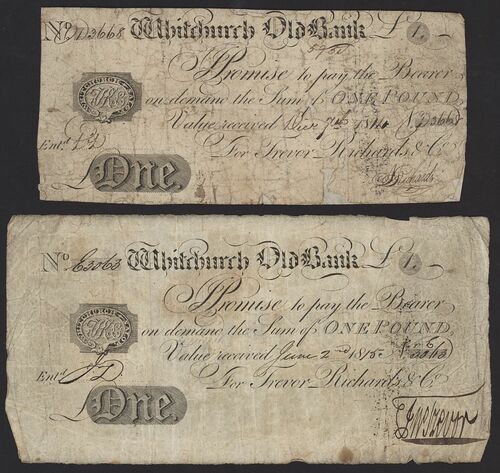 No D3668 Whitchurch Old Bank £1.
I Promise to pay the Bearer
on demand the Sum of ONE POUND
WHITCHURCH
Value received Dec 7th 1814 D3668
Entd.
For Trevor, Richards & Co.
Richards
One.
No E3063 Whitchurch Old Bank £1.
I Promise to pay the Bearer
on demand the Sum of ONE POUND,
WHITCHURCH SALOP
Value received June 2nd 1815. E3063
Entd. JD
For Trevor, Richards & Co.
One